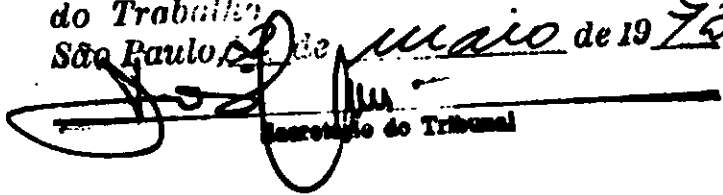 do Trabalho
São Paulo, de maio de 19
Secretário do Tribunal